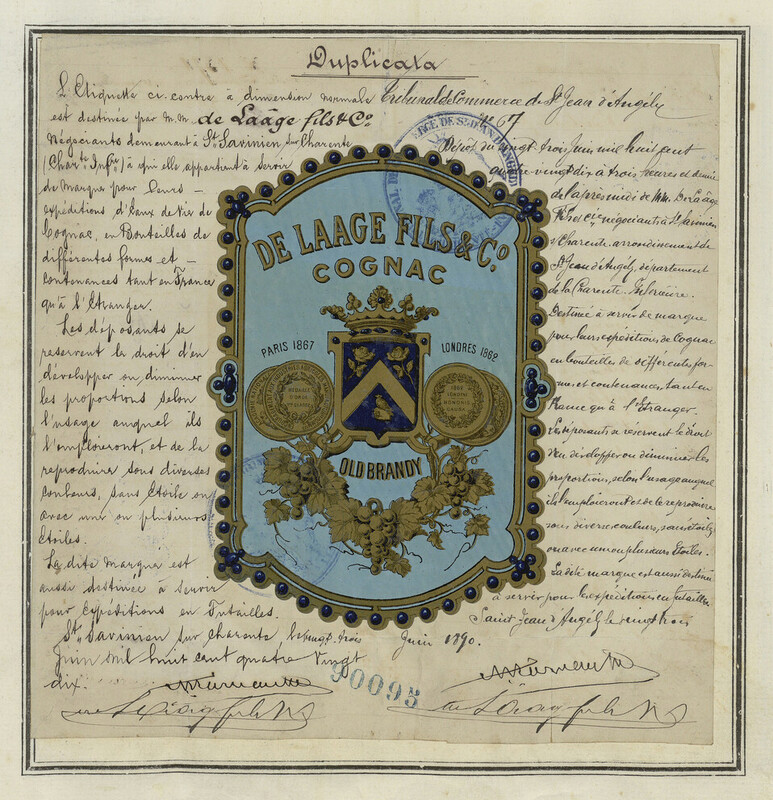 Duplicata
L'Etiquette ci-contre à dimension normale
est destinée par M.M. de Laâge fils & Co
Négociants demeurant à St Savinien sur Charente
(Chante Infre) à qui elle appartient à servir
de Marque pour leurs
expéditions d'Eaux de Vie de
Cognac, en Bouteilles de
différentes formes et
contenances tant en France
qu'à l'Etranger.
Les déposants se
reservent le droit d'en
développer ou diminuer
les proportions selon
l'usage auquel ils
l'emploieront, et de la
reproduire sous diverses
couleurs, sans étoile ou
avec une ou plusieurs
étoiles.
La dite marque est
aussi destinée à servir
pour expéditions en Futailles.
St Savinien sur Charente le vingt-trois
Juin mil huit cent quatre vingt
dix.
Tribunal de Commerce de St Jean d'Angély
No 67
Dépôt du vingt trois juin mil huit cent
quatre vingt dix à trois heures et demie
de l'après midi de MM. De Laâge
fils et Cie négociants à St Savinien
s/ Charente arrondissement de
St Jean d'Angély, département
de la Charente Inférieure.
Destinée à servir de marque
pour leurs expéditions de Cognac
en bouteilles de différentes for-
mes et contenances, tant en
France qu'à l'Etranger.
Les déposants se réservent le droit
d'en développer ou diminuer les
proportions, selon l'usage auquel
ils l'emploieront et de le reproduire
sous diverses couleurs, sans étoiles
ou avec une ou plusieurs étoiles.
La dite marque est aussi destinée
à servir pour les expéditions en futailles
Saint Jean d'Angély le vingt trois
Juin 1890.
DE LAAGE FILS & Co.
COGNAC
PARIS 1867
LONDRES 1862
OLD BRANDY
90095